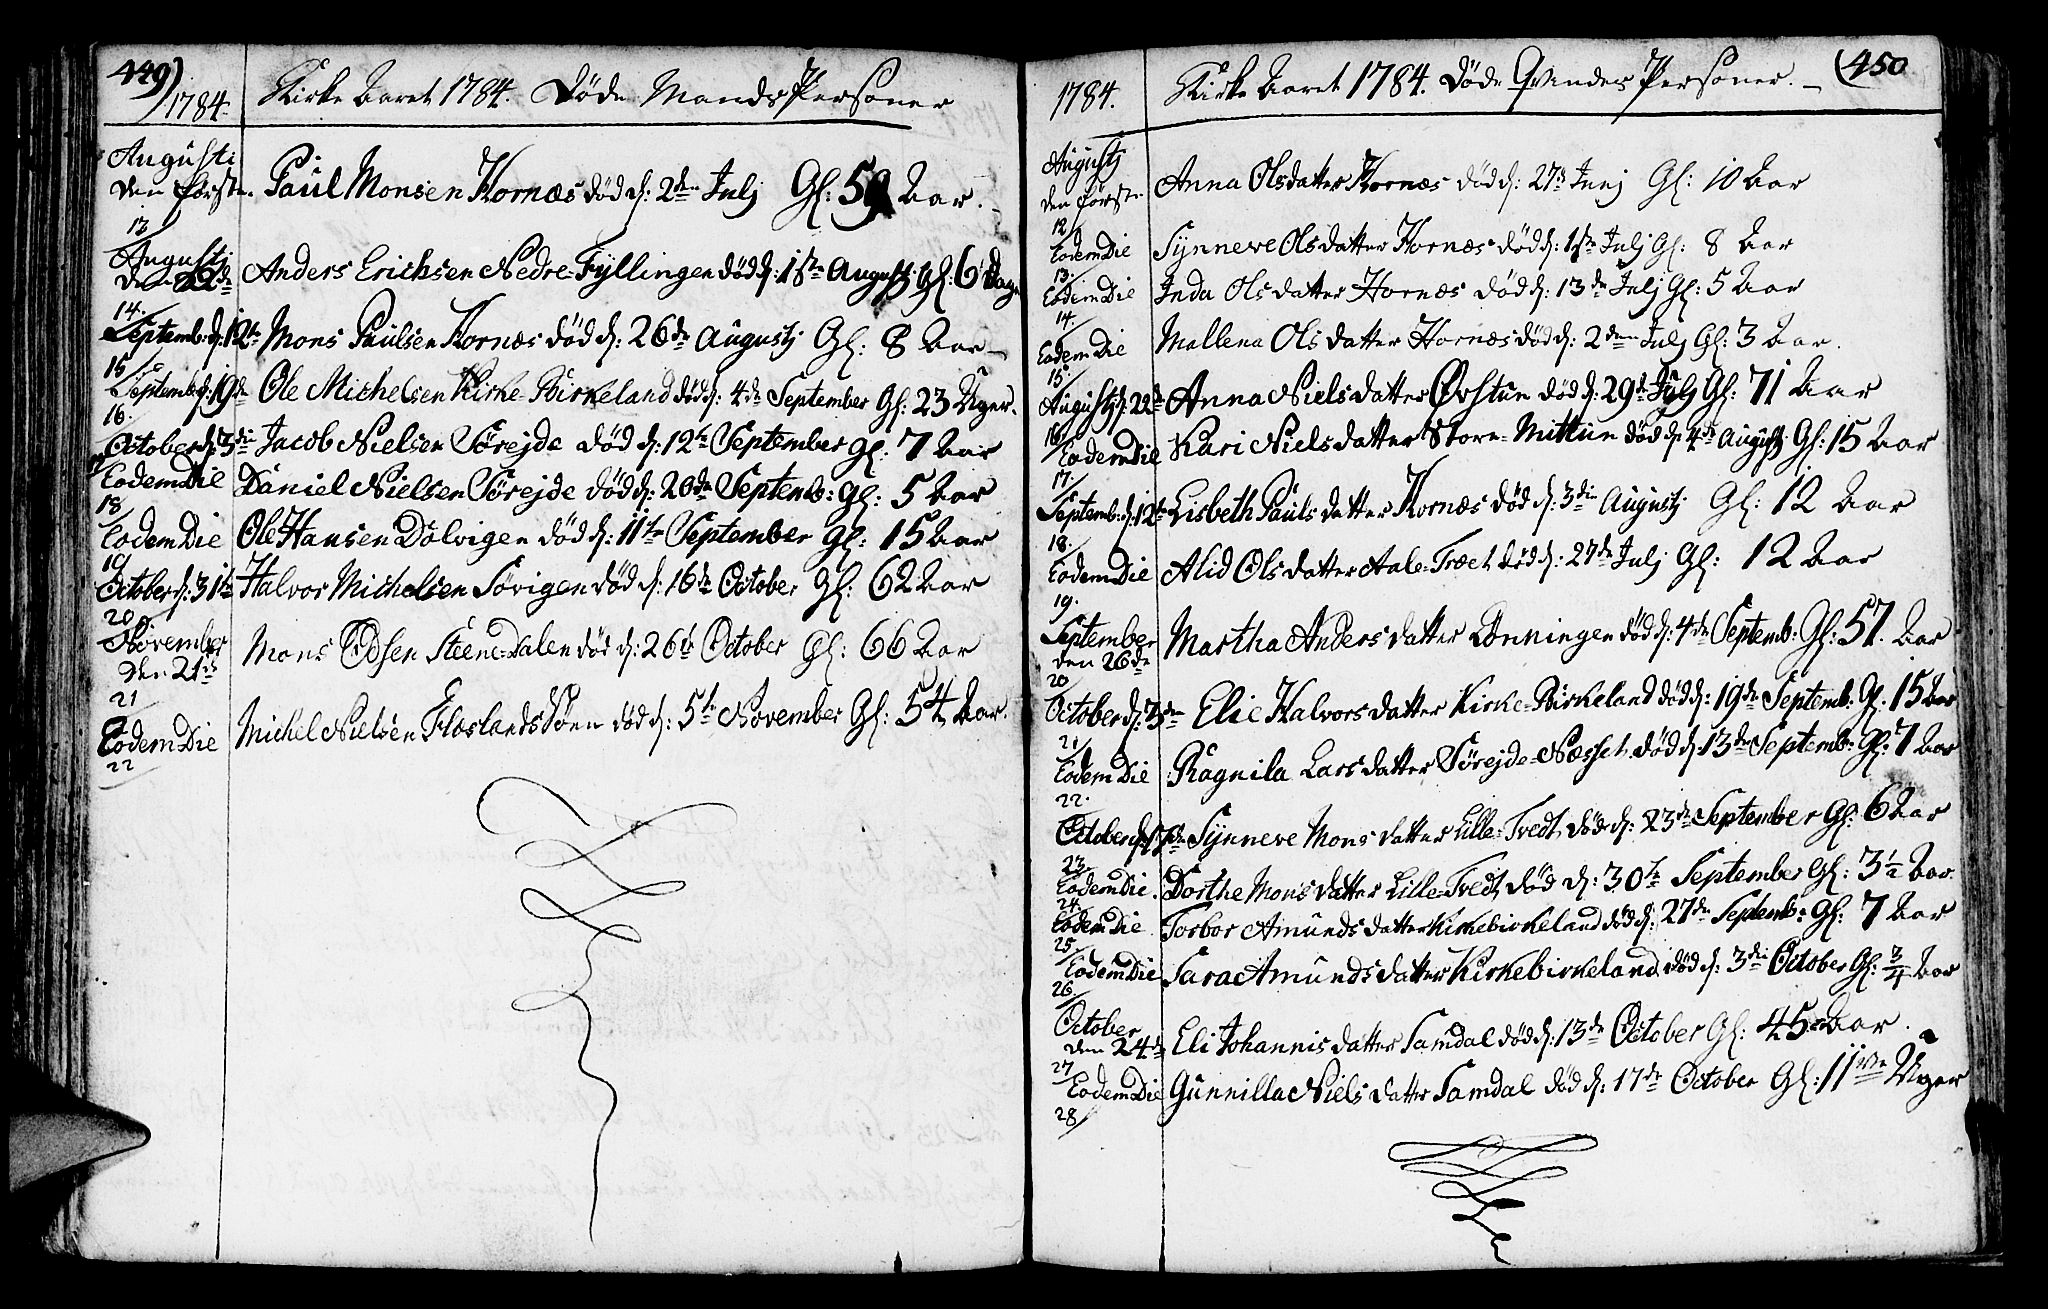 449)
1784. Kirke Aaret 1784. Døde Mands Personer
Augusti
den første. Paul Monsen Hornæs død d: 2den Julj Gl: 59 Aar.
13
Augustj
den 22de Anders Erichsen Nedre-Fyllingen død d: 1ste Augustj Gl: 6 Dage
14.
Septemb: d: 12te Mons Paulsen Hornæs død d: 26de Augustj Gl: 8 Aar
15
Septemb: d: 19de Ole Michelsen Kirke-Birkeland død d: 4de September Gl: 23 Uger.
16.
October d: 3die Jacob Nielsen Sørejde død d: 12te September Gl: 7 Aar
17
Eodem Die Daniel Nielsen Sørejde død d: 20de Septemb: Gl: 5 Aar
18
Eodem Die Ole Hansen Dolvigen død d: 11te September Gl: 15 Aar
19
October d: 31te Halvor Michelsen Søvigen død d: 16de October Gl: 62 Aar
20
November
den 21de Mons Odsen Steene-Dalen død d: 26te October Gl: 66 Aar
21
Eodem Die Michel Nielsen Flæslandsdøen død d: 5te November Gl: 54 Aar.
22
1784. Kirke Aaret 1784. Døde Qvindes Personer. (450
Augustj
den første Anna Olsdatter Hornæs død d: 27de Junj Gl: 10 Aar
12
Eodem Die Synneve Olsdatter Hornæs død d: 1ste Julj Gl: 8 Aar
13.
Eodem Die Inda Olsdatter Hornæs død d: 13de Julj Gl: 5 Aar
14.
Eodem Die Mallena Olsdatter Hornæs død d: 2den Julj Gl: 3 Aar.
15.
Augustj d: 22de Anna Nielsdatter Øvstun død d: 29de Julj Gl: 71 Aar
16
Eodem Die Kari Nielsdatter Store-Mittun død d: 4de Augustj Gl: 15 Aar
17.
Septemb: d: 12te Lisbeth Pauls datter Hornæs død d: 3die Augustj Gl: 12 Aar
18.
Eodem Die Alid Olsdatter Aale-Træet død d: 27de Julj Gl: 12 Aar
19.
September
den 26de Martha Anders datter Lønningen død d: 4de Septemb: Gl: 57. Aar
20
October d: 3die Elie Halvors datter Kirke-Birkeland død d: 19de Septemb: Gl: 15 Aar
21
Eodem Die Ragnila Lars datter Sørejde-Næsset død d: 13de Septemb: Gl: 7 Aar
22.
October d: 17de Synneve Mons datter Lille-Tvedt død d: 23de September Gl: 6 Aar
23
Eodem Die. Dorthe Mons datter Lille-Tvedt død d: 30te September Gl: 3½ Aar.
24.
Eodem Die Torbor Amunds datter Kirkebirkeland død d: 27de Septemb: Gl: 7 Aar
25
Eodem Die Sara Amunds datter Kirkebirkeland død d: 3die October Gl: ¾ Aar
26.
October
den 24de Eli Johannis datter Samdal død d: 13de October Gl: 45 Aar.
27
Eodem Die Gunnilla Niels datter Samdal død d: 17de October Gl: 11 Uger
28